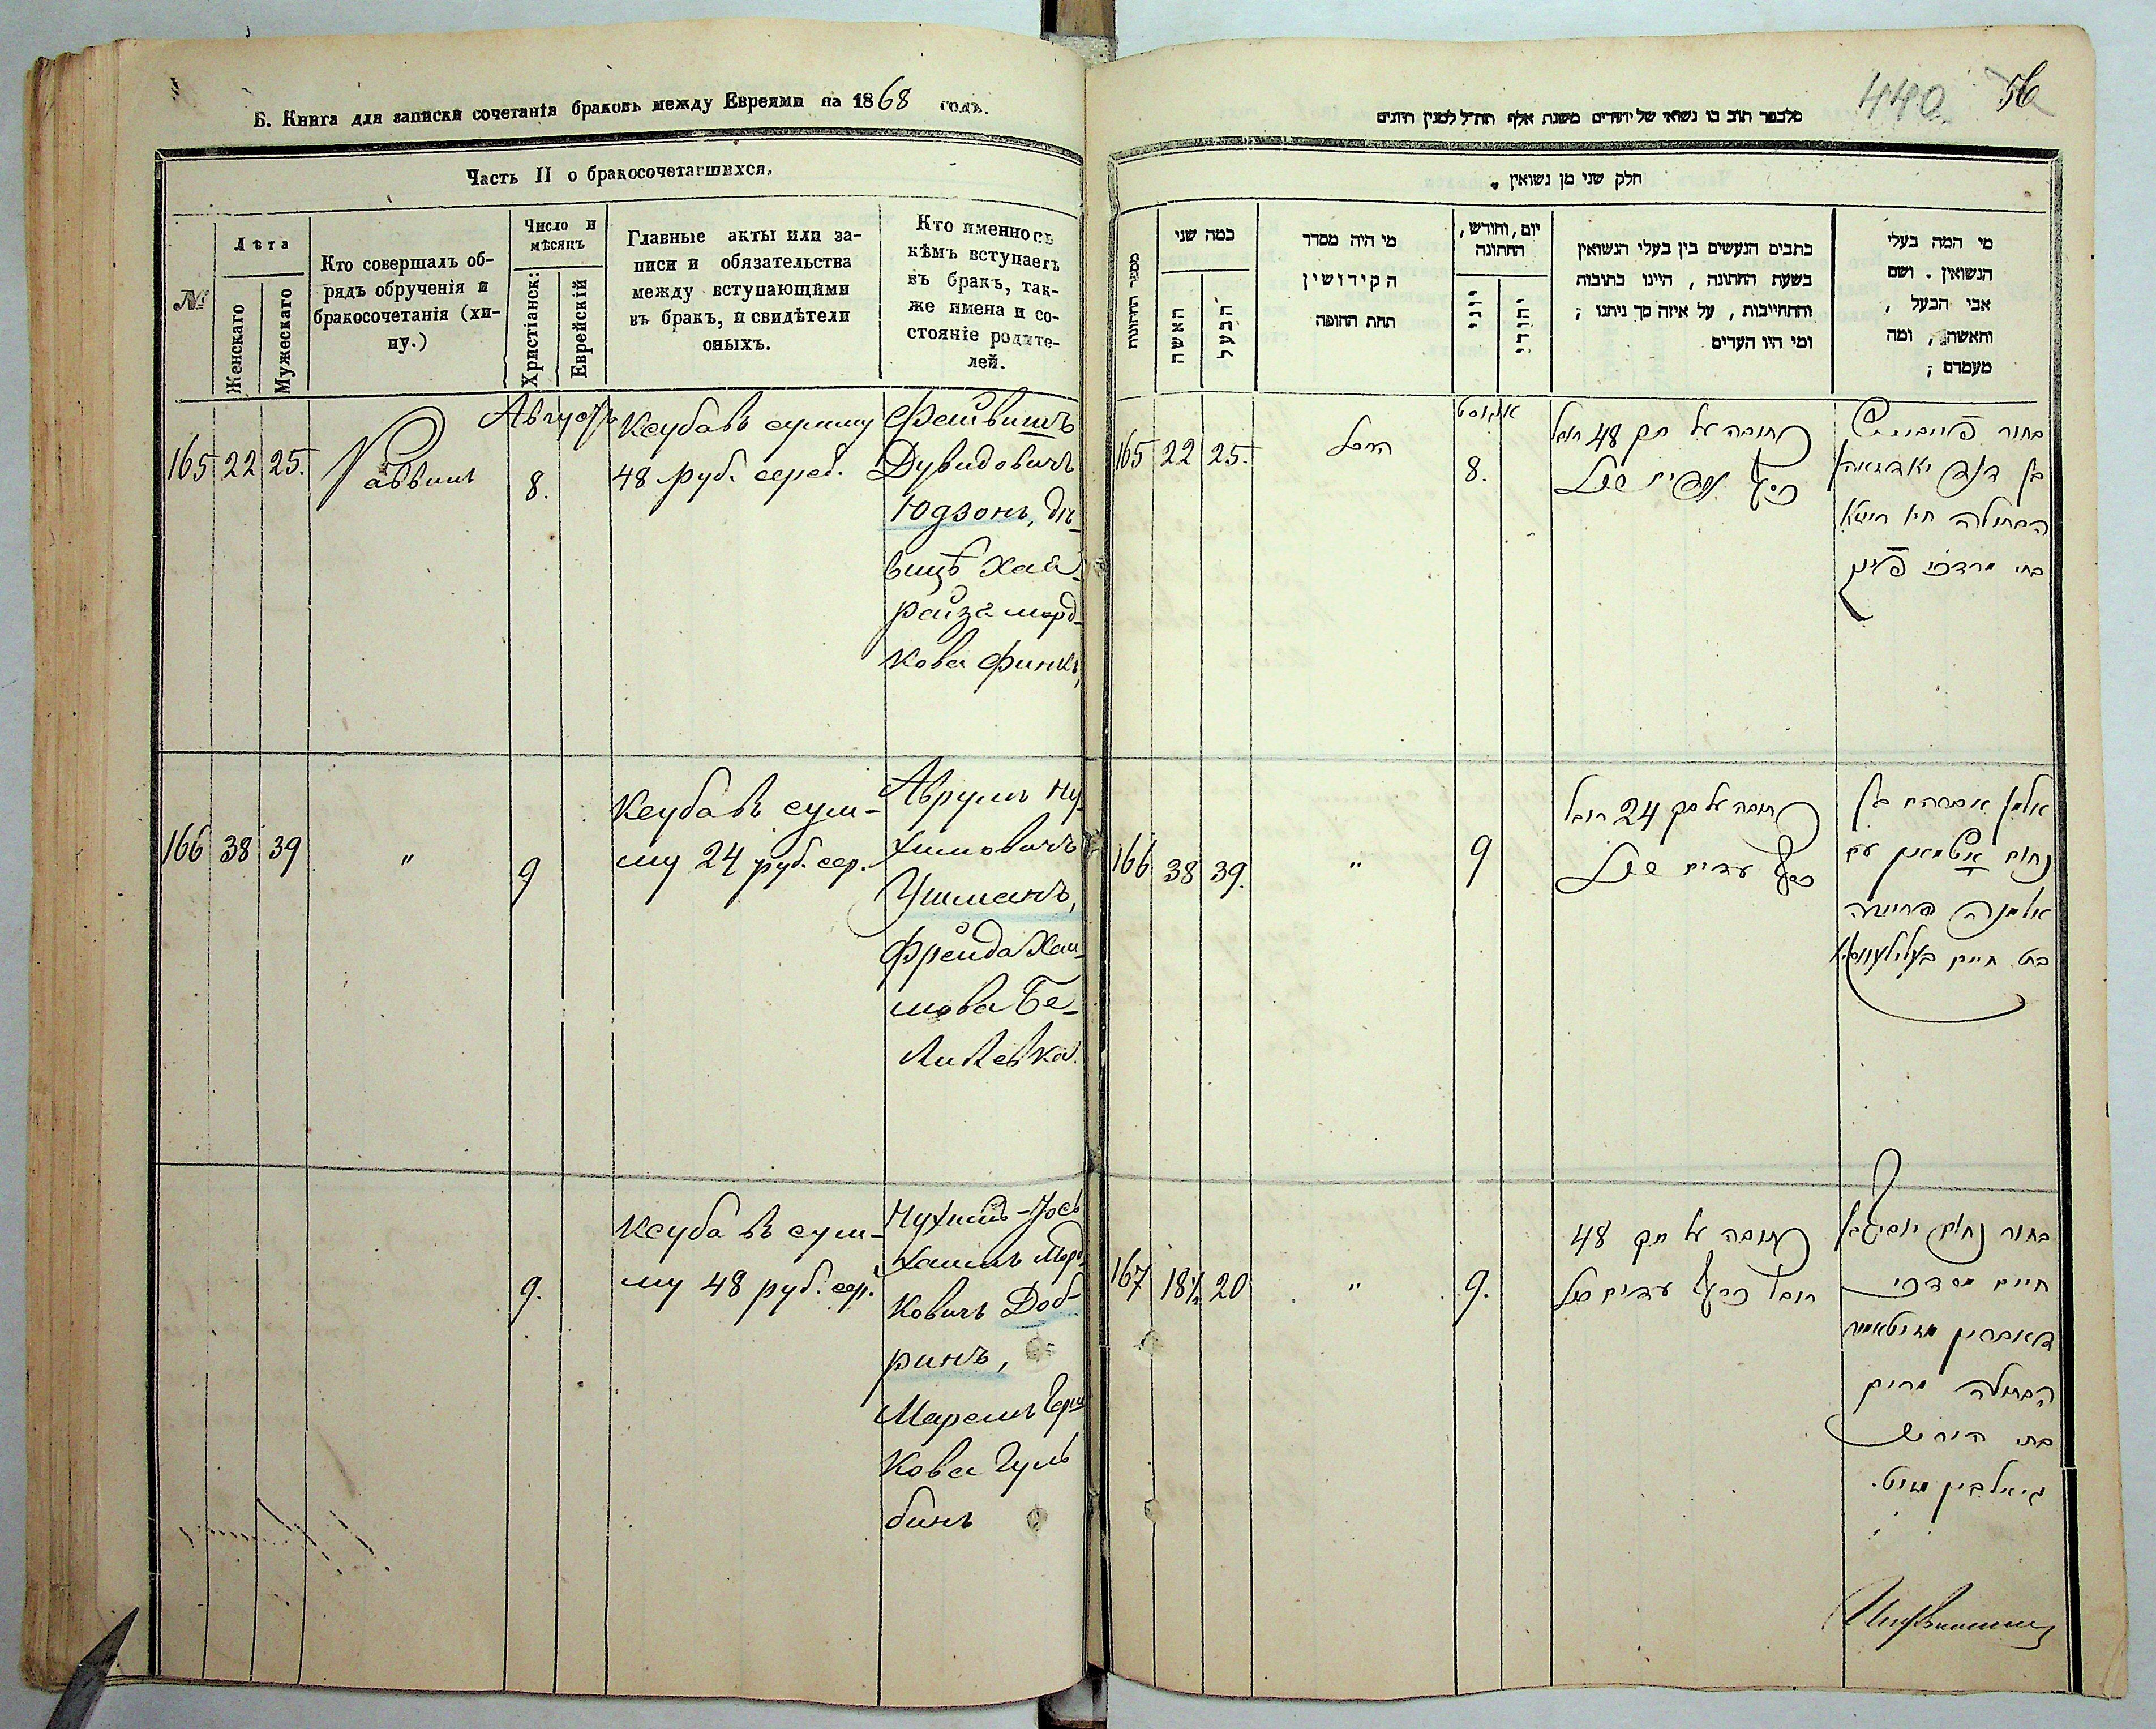 Б. Книга для записки сочетанія браковъ между Евреями на 1868 годъ.
Часть II о бракосочетавшихся.
№
Лѣта
Женскаго
Мужескаго
Кто совершалъ об-
рядъ обрученія и
бракосочетанія (хи-
пу.)
Число и
мѣсяцъ
Христіанск:
Еврейскій
Главные акты или за-
писи и обязательства
между вступающими
въ бракъ, и свидѣтели
оныхъ.
Кто именно съ
кѣмъ вступаетъ
въ бракъ, так-
же имена и со-
стояніе родите-
лей.
165 22 25.
Раввинъ
Августъ
8.
Ксуба въ сумму
48 руб. сереб.
Фейвишъ
Дувидовичъ
Юдзонъ, дѣ-
вицѣ Хая
Райза Морд-
кова Финкъ,
166 38 39
"
9
Ксуба въ сум-
му 24 руб. сер.
Аврумъ Ну-
химовичъ
Ушманъ,
Фрейда Хаи-
мова Бе-
лилевка.
9.
Ксуба въ сум-
му 48 руб. сер.
Нухимъ-Іось
Хаимъ Морд-
ковичъ Доб-
ринъ,
Маремъ Герш-
кова Гуль
бинъ
440. 56
חלק שני מן נשואין .
מספר החתונות
כמה שני
האשה
הבעל
מי היה מסדר
הקידושין
תחת החופה
יום, וחודש,
החתונה
יוני
יהודי
כתבים הנעשים בין בעלי הנשואין
בשעת החתונה , היינו כתובות
והתחייבות , על איזה סך ניתנו ;
ומי היו העדים
מי המה בעלי
הנשואין . ושם
אבי הבעל ,
והאשה , ומה
מעמדם ;
165 22 25.
הרב
אוגוסט
8.
כתובה על סך 48 רובל
כסף
בחור פייבוש
בן דוד יאדזאהן
הבתולה חיה רייזא
בת מרדכי פינק
166 38 39.
"
9
כתובה על סך 24 רובל
כסף עדים
אלמן אברהם בן
נחום אושמאן עם
אלמנה פריידה
בת חיים בעלילעווקא
167 18½ 20
"
9.
כתובה על סך 48
רובל כסף עדים
בחור נחום יוסף בן
חיים מרדכי
דאברין
הבתולה מרים
בת הירש
גיאלבין